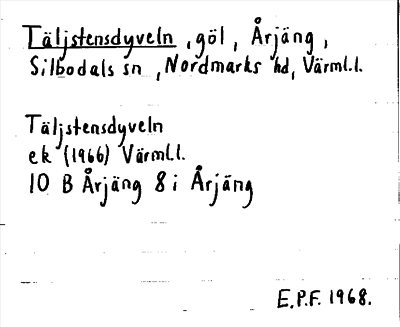 Täljstensdyveln , göl , Årjäng ,
Silbodals sn , Nordmarks hd, Värml.l.
Täljstensdyveln
ek (1966) Värml.l.
10 B Årjäng 8 i Årjäng
E.P.F. 1968.